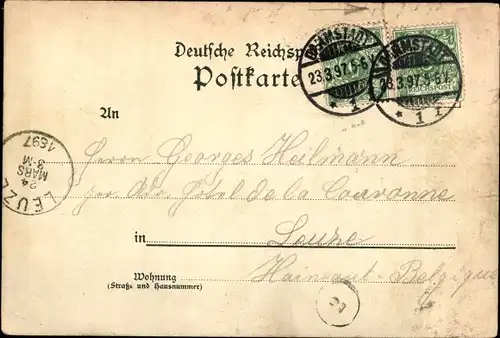 Deutsche Reichsp
Postkarte
DARMSTADT
23.3.97.5-6
* 1
DARMSTADT
23.3.97.5-6
* 1
REICHSPOST
An
Herrn Georges Heilmann
Hôtel de la Couronne
in Leuze
Hainaut-Belgique
Wohnung
(Straße und Hausnummer)
LEUZE
24
MARS
3-M
1897